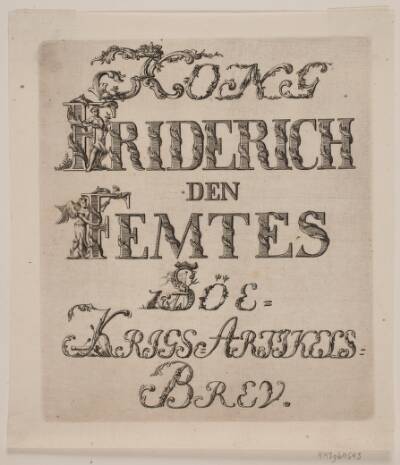 KONG
FRIDERICH
DEN
FEMTES
SÖE=
KRIGS=ARTIKELS=
BREV.